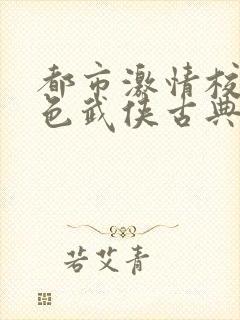 都市激情校
色武侠古典
若艾青